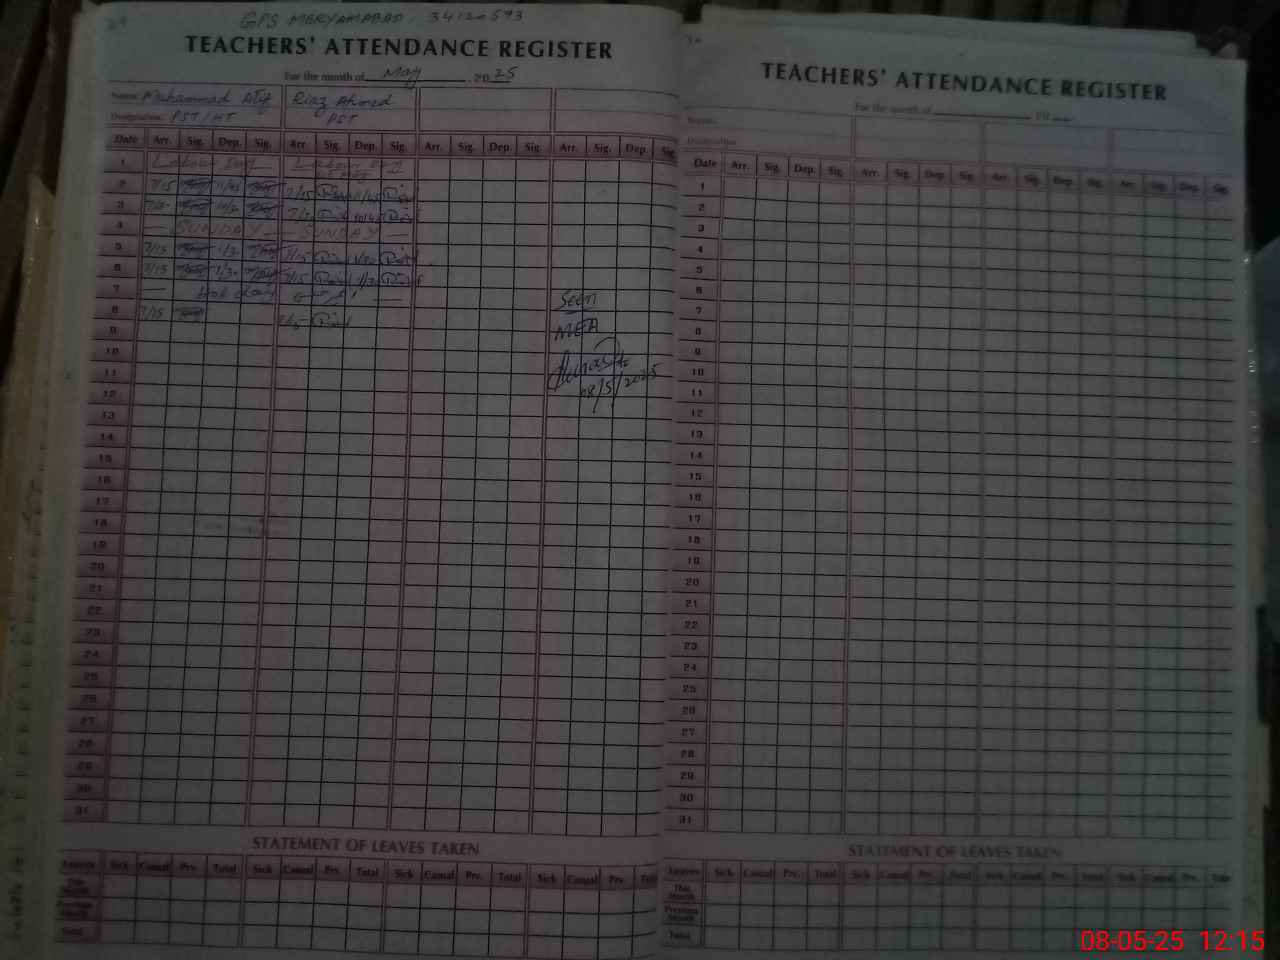 29
GPS MERYAMABAD. 34120593
TEACHERS' ATTENDANCE REGISTER
For the month of May 2025
Name: Muhammad Atif Riaz Ahmed
Designation: PST/HT PST
Date Arr. Sig. Dep. Sig. Arr. Sig. Dep. Sig. Arr. Sig. Dep. Sig. Arr. Sig. Dep. Sig.
1 Labour Day Labour Day
2 7/15 11/45 7/15
3
4 — SUNDAY — — SUNDAY —
5 7/15 1/30 7/15 1/30
6 7/15 1/30 7/15 1/30
7
8 7/15
Seen
MEA
08/5/2025
9
10
11
12
13
14
15
16
17
18
19
20
21
22
23
24
25
26
27
28
29
30
31
STATEMENT OF LEAVES TAKEN
Leaves Sick Casual Prv. Total Sick Casual Prv. Total Sick Casual Prv. Total Sick Casual Prv. Total
This Month
Previous Month
Total
TEACHERS' ATTENDANCE REGISTER
For the month of 20
Name:
Designation
Date Arr. Sig. Dep. Sig. Arr. Sig. Dep. Sig. Arr. Sig. Dep. Sig. Arr. Sig. Dep. Sig.
1
2
3
4
5
6
7
8
9
10
11
12
13
14
15
16
17
18
19
20
21
22
23
24
25
26
27
28
29
30
31
STATEMENT OF LEAVES TAKEN
Leaves Sick Casual Prv. Total Sick Casual Prv. Total Sick Casual Prv. Total Sick Casual Prv. Total
This Month
Previous Month
Total
08-05-25 12:15